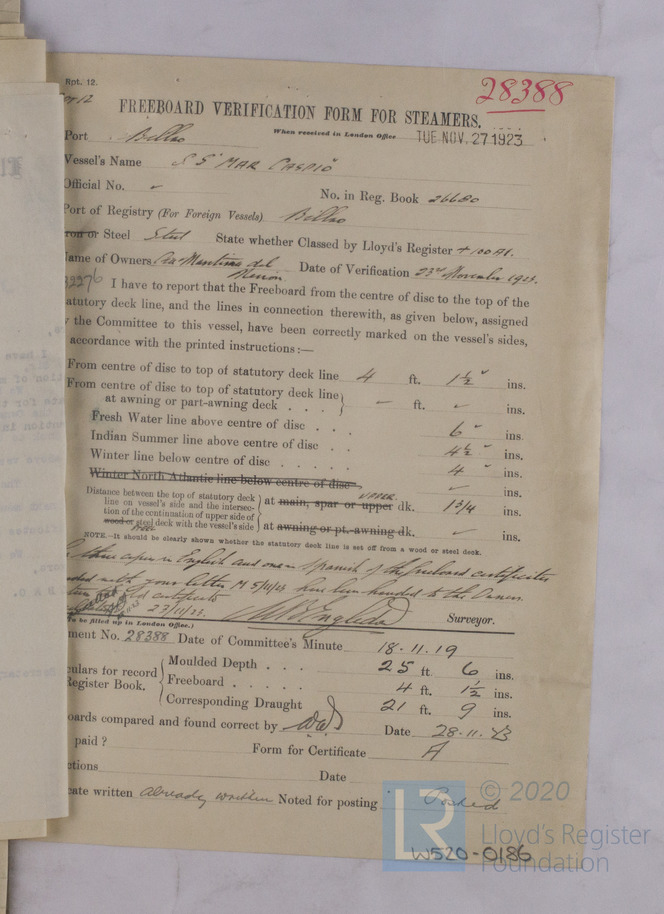 Rpt. 12.
28388
FREEBOARD VERIFICATION FORM FOR STEAMERS.
When received in London Office TUE NOV. 27 1923
Port Bilbao
Vessel's Name S.S "MAR CASPIO"
Official No. No. in Reg. Book 26680
Port of Registry (For Foreign Vessels) Bilbao
Iron or Steel Steel State whether Classed by Lloyd's Register + 100 A1.
Name of Owners Cia Maritima del Nervion Date of Verification 23rd November 1923.
32276 I have to report that the Freeboard from the centre of disc to the top of the
tatutory deck line, and the lines in connection therewith, as given below, assigned
y the Committee to this vessel, have been correctly marked on the vessel's sides,
accordance with the printed instructions:—
From centre of disc to top of statutory deck line 4 ft. 1½ ins.
From centre of disc to top of statutory deck line
at awning or part-awning deck . . . . - ft. ins.
Fresh Water line above centre of disc . . . 6 ins.
Indian Summer line above centre of disc . . 4½ ins.
Winter line below centre of disc . . . . . 4 ins.
Winter North Atlantic line below centre of disc ins.
Distance between the top of statutory deck
line on vessel's side and the intersec-
tion of the continuation of upper side of
wood or steel deck with the vessel's side
at main, spar or upper UPPER dk. 1 3/4 ins.
at awning or pt.-awning dk. ins.
NOTE.—It should be clearly shown whether the statutory deck line is set off from a wood or steel deck.
three copies in English and one in Spanish of the freeboard certificates
with your letter M 5/11/23 have been handed to the Owners
old certificate
23/11/23. Surveyor.
To be filled up in London Office.)
ment No. 28388 Date of Committee's Minute 18.11.19
culars for record
Register Book.
Moulded Depth . . . 25 ft 6 ins.
Freeboard . . . . . 4 ft. 1½ ins.
Corresponding Draught 21 ft. 9 ins.
oards compared and found correct by Date 28.11.23
paid? Form for Certificate A
ctions Date
cate written already written Noted for posting Posted
LR
© 2020
Lloyd's Register
Foundation
W520-0186